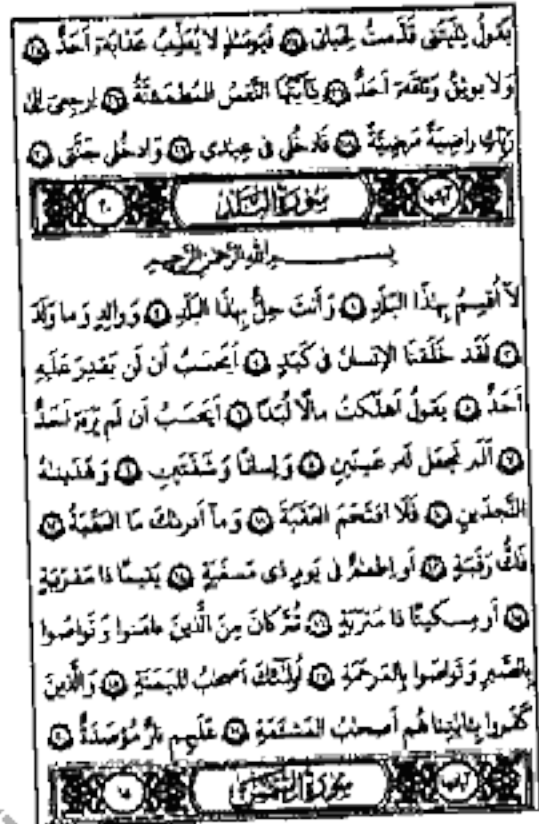 يَقُولُ يَٰلَيْتَنِى قَدَّمْتُ لِحَيَاتِى ﴿٢٤﴾ فَيَوْمَئِذٍ لَّا يُعَذِّبُ عَذَابَهُۥٓ أَحَدٌ ﴿٢٥﴾
وَلَا يُوثِقُ وَثَاقَهُۥٓ أَحَدٌ ﴿٢٦﴾ يَٰٓأَيَّتُهَا ٱلنَّفْسُ ٱلْمُطْمَئِنَّةُ ﴿٢٧﴾ ٱرْجِعِىٓ إِلَىٰ
رَبِّكِ رَاضِيَةً مَّرْضِيَّةً ﴿٢٨﴾ فَٱدْخُلِى فِى عِبَٰدِى ﴿٢٩﴾ وَٱدْخُلِى جَنَّتِى ﴿٣٠﴾
سُورَةُ الْبَلَدِ آياتها ٢٠
بِسْمِ ٱللَّهِ ٱلرَّحْمَٰنِ ٱلرَّحِيمِ
لَآ أُقْسِمُ بِهَٰذَا ٱلْبَلَدِ ﴿١﴾ وَأَنتَ حِلٌّۢ بِهَٰذَا ٱلْبَلَدِ ﴿٢﴾ وَوَالِدٍ وَمَا وَلَدَ
﴿٣﴾ لَقَدْ خَلَقْنَا ٱلْإِنسَٰنَ فِى كَبَدٍ ﴿٤﴾ أَيَحْسَبُ أَن لَّن يَقْدِرَ عَلَيْهِ
أَحَدٌ ﴿٥﴾ يَقُولُ أَهْلَكْتُ مَالًا لُّبَدًا ﴿٦﴾ أَيَحْسَبُ أَن لَّمْ يَرَهُۥٓ أَحَدٌ
﴿٧﴾ أَلَمْ نَجْعَل لَّهُۥ عَيْنَيْنِ ﴿٨﴾ وَلِسَانًا وَشَفَتَيْنِ ﴿٩﴾ وَهَدَيْنَٰهُ
ٱلنَّجْدَيْنِ ﴿١٠﴾ فَلَا ٱقْتَحَمَ ٱلْعَقَبَةَ ﴿١١﴾ وَمَآ أَدْرَىٰكَ مَا ٱلْعَقَبَةُ ﴿١٢﴾
فَكُّ رَقَبَةٍ ﴿١٣﴾ أَوْ إِطْعَٰمٌ فِى يَوْمٍ ذِى مَسْغَبَةٍ ﴿١٤﴾ يَتِيمًا ذَا مَقْرَبَةٍ
﴿١٥﴾ أَوْ مِسْكِينًا ذَا مَتْرَبَةٍ ﴿١٦﴾ ثُمَّ كَانَ مِنَ ٱلَّذِينَ ءَامَنُوا۟ وَتَوَاصَوْا۟
بِٱلصَّبْرِ وَتَوَاصَوْا۟ بِٱلْمَرْحَمَةِ ﴿١٧﴾ أُو۟لَٰٓئِكَ أَصْحَٰبُ ٱلْمَيْمَنَةِ ﴿١٨﴾ وَٱلَّذِينَ
كَفَرُوا۟ بِـَٔايَٰتِنَا هُمْ أَصْحَٰبُ ٱلْمَشْـَٔمَةِ ﴿١٩﴾ عَلَيْهِمْ نَارٌ مُّؤْصَدَةٌۢ ﴿٢٠﴾
سُورَةُ الشَّمْسِ آياتها ١٥